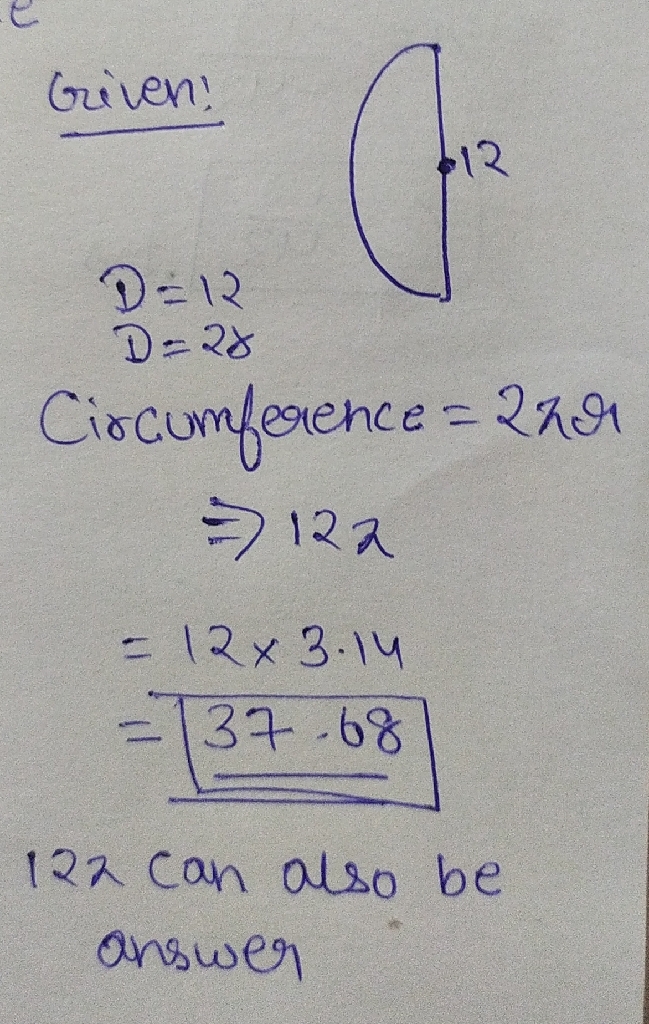 e
Given:
12
D = 12
D = 2r
Circumference = 2πr
⇒ 12π
= 12 x 3.14
= 37.68
12π can also be
answer